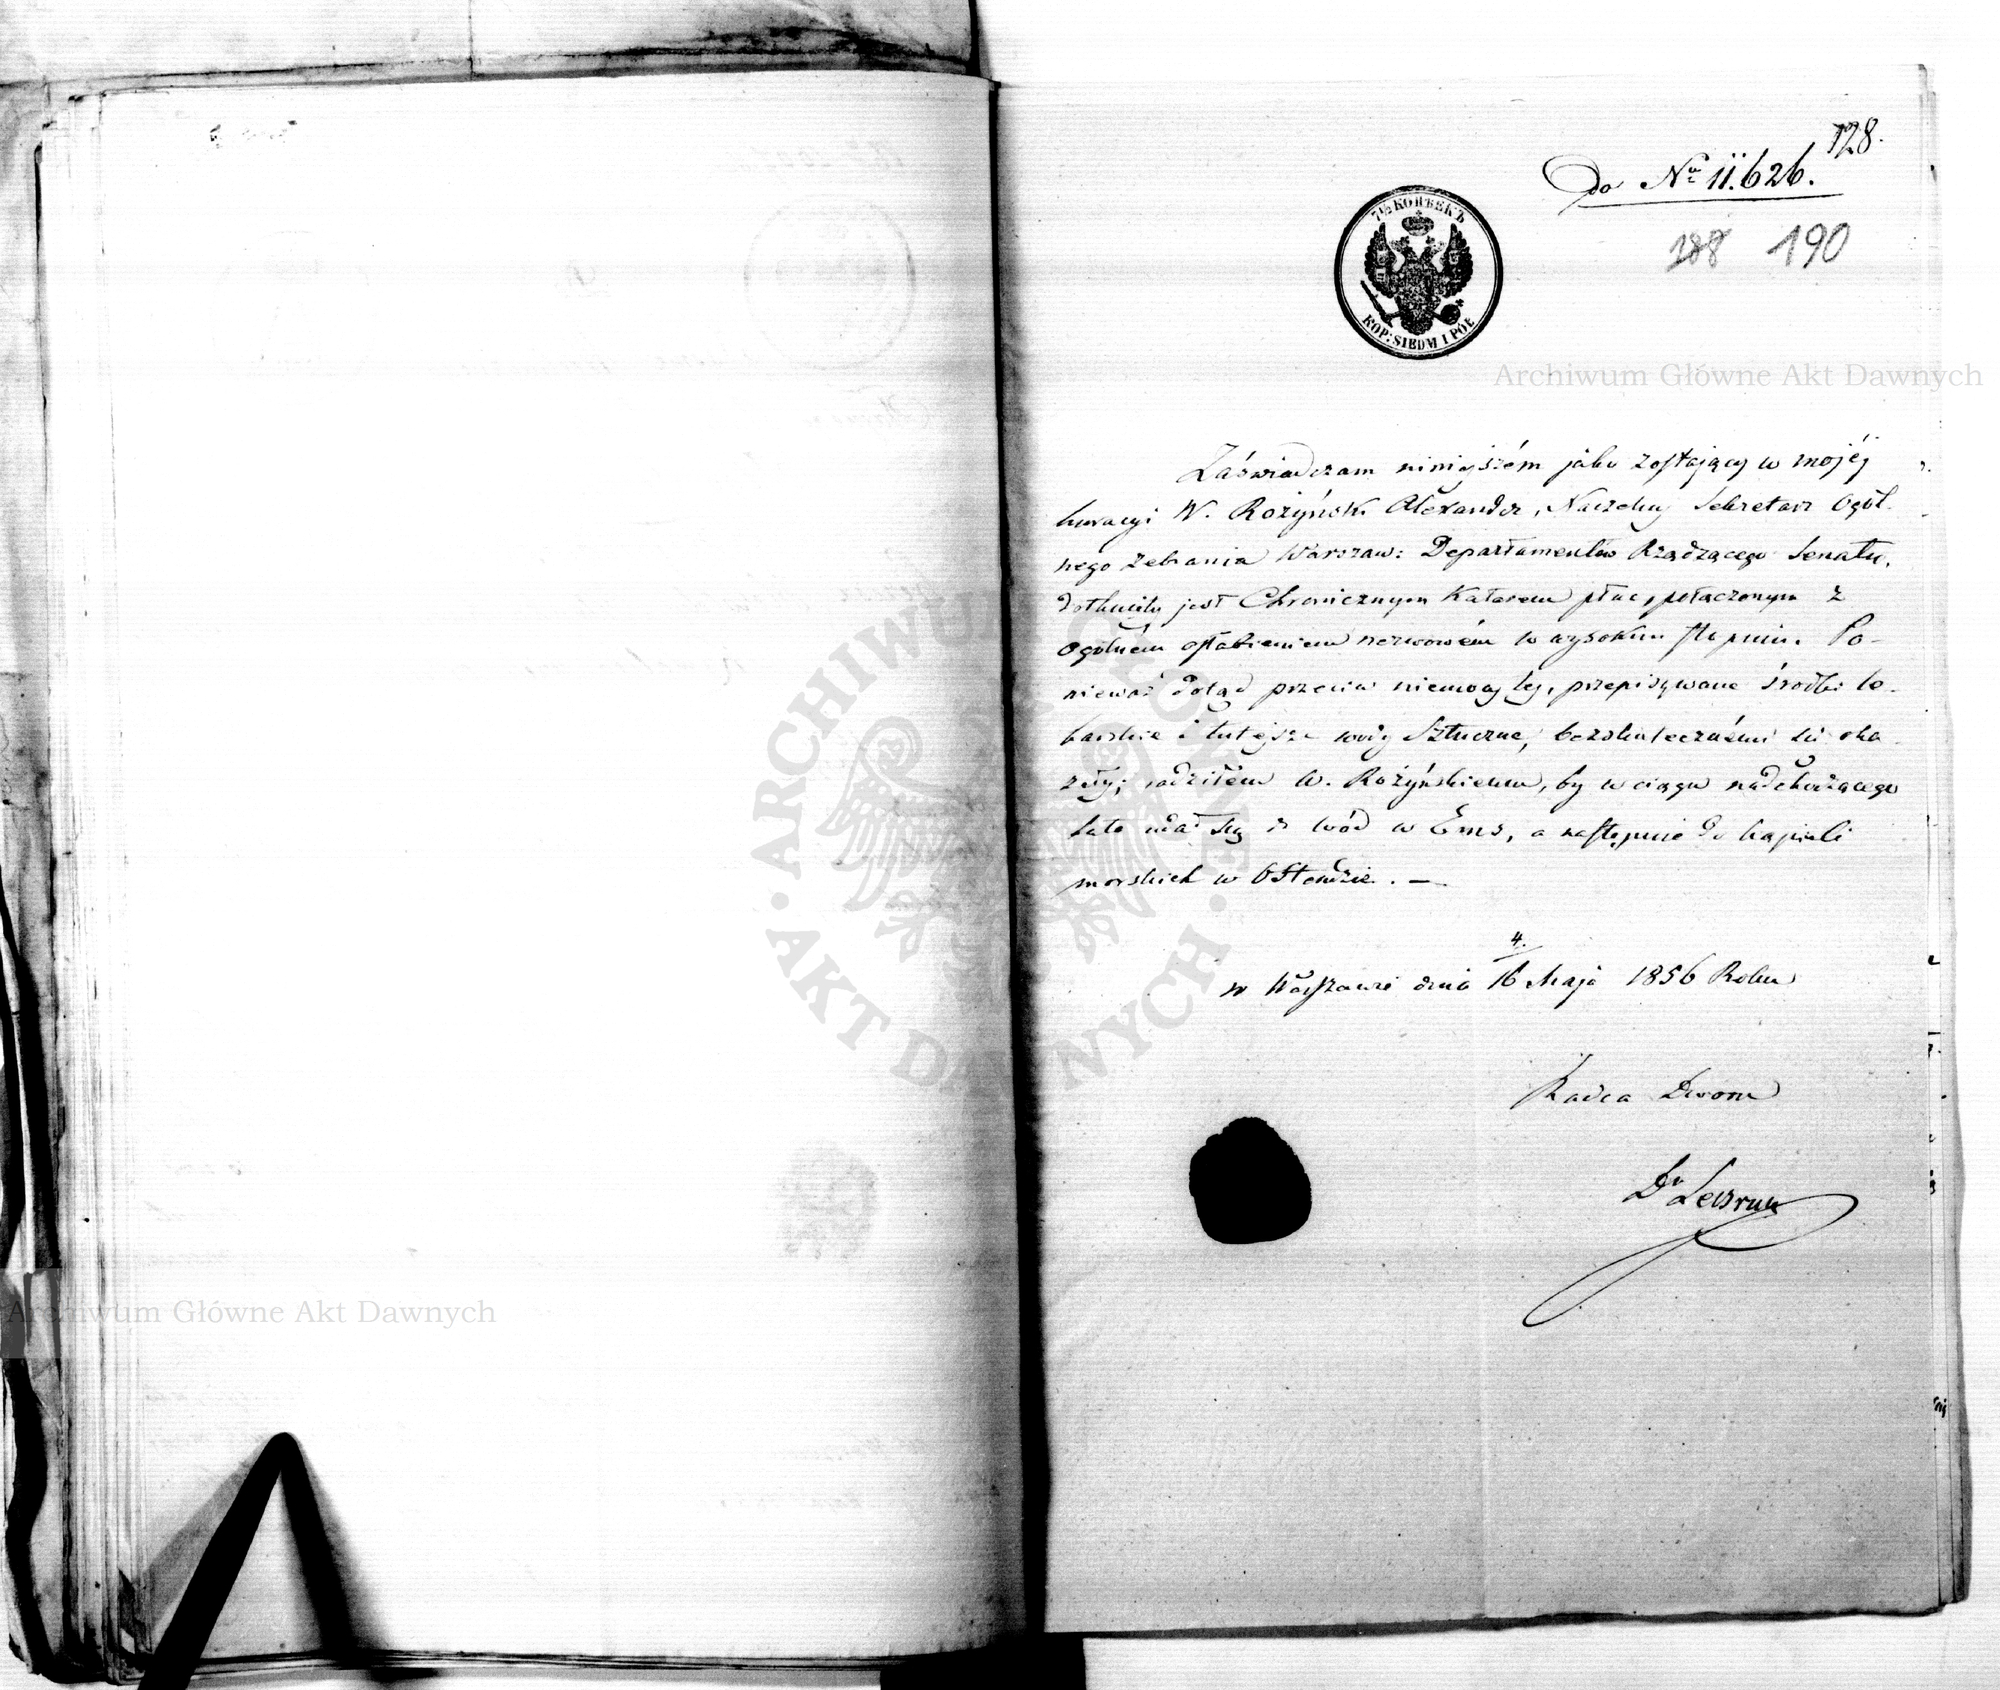 128.
Do No 11.626.
188 190
7½ КОПѢЕКЪ
KOP: SIEDM I PÓŁ
Archiwum Główne Akt Dawnych
Zaświadczam niniejszém jako zostający w mojéj
kuracyi W. Rożyński Alexander, Naczelny Sekretarz Ogól-
nego Zebrania Warszaw: Departamentów Rządzącego Senatu,
dotknięty jest Chronicznym Katarem płuc, połączonym z
ogólném osłabieniem nerwowém w wysokim stopniu. Po-
nieważ dotąd przeciw niemocy tej, przepisywane środki le-
karskie i tutejsze wody Sztuczne, bezskutecznémi się oka-
zały; radziłem W. Rożyńskiemu, by w ciągu nadchodzącego
lata udał się do wód w Ems, a następnie do kąpieli
morskich w Ostendzie. —
w Warszawie dnia 4/16 Maja 1856 Roku
Radca Dworu
Dr
ARCHIWUM GŁÓWNE
AKT DAWNYCH
Archiwum Główne Akt Dawnych